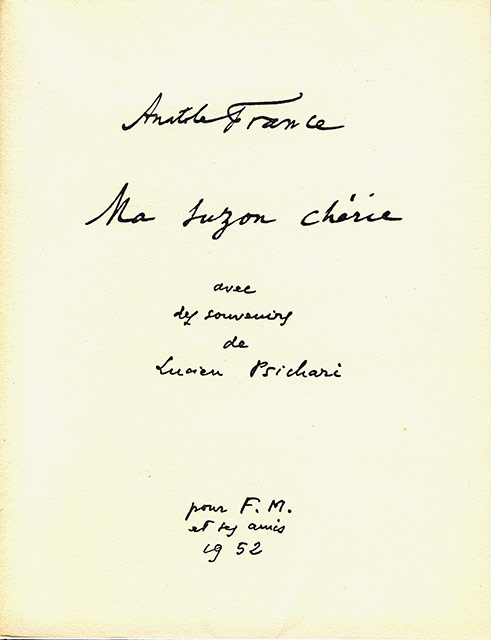 Anatole France
Ma Suzon chérie
avec
des souvenirs
de
Lucien Psichari
pour F. M.
et ses amis
1952